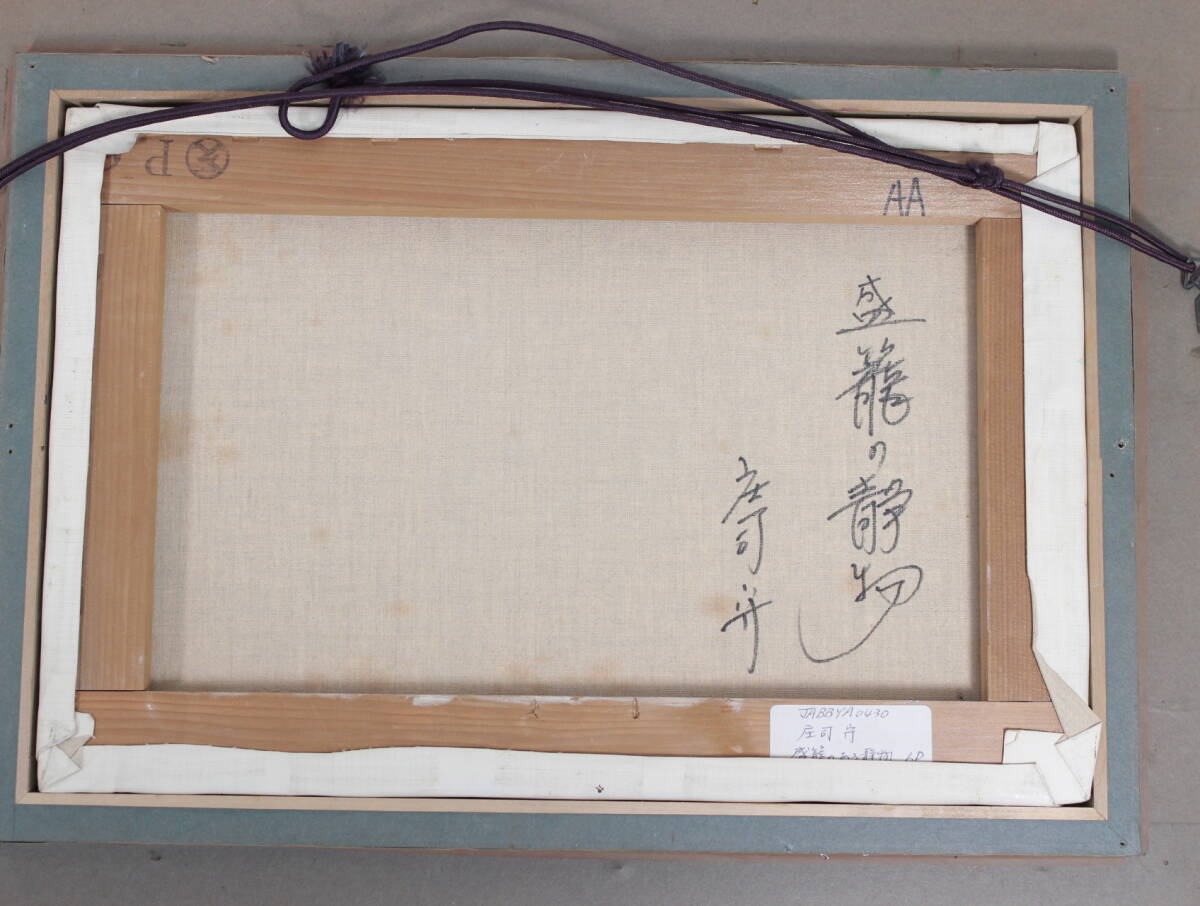 P
AA
盛籠の静物
庄司守
JABBYA0430
庄司 守
盛籠のある静物 6P